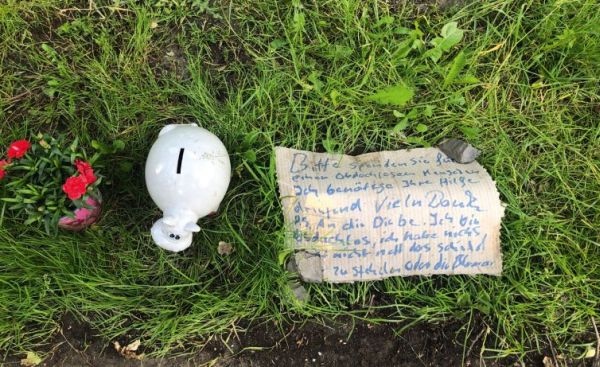 Bitte spenden Sie für
einen obdachlosen Menschen
Ich benötige Ihre Hilfe
dringend Vieln Dank
PS. An die Diebe. Ich bin
obdachlos, ich habe nichts
nicht mal das schild
zu stehlen oder die Blumen